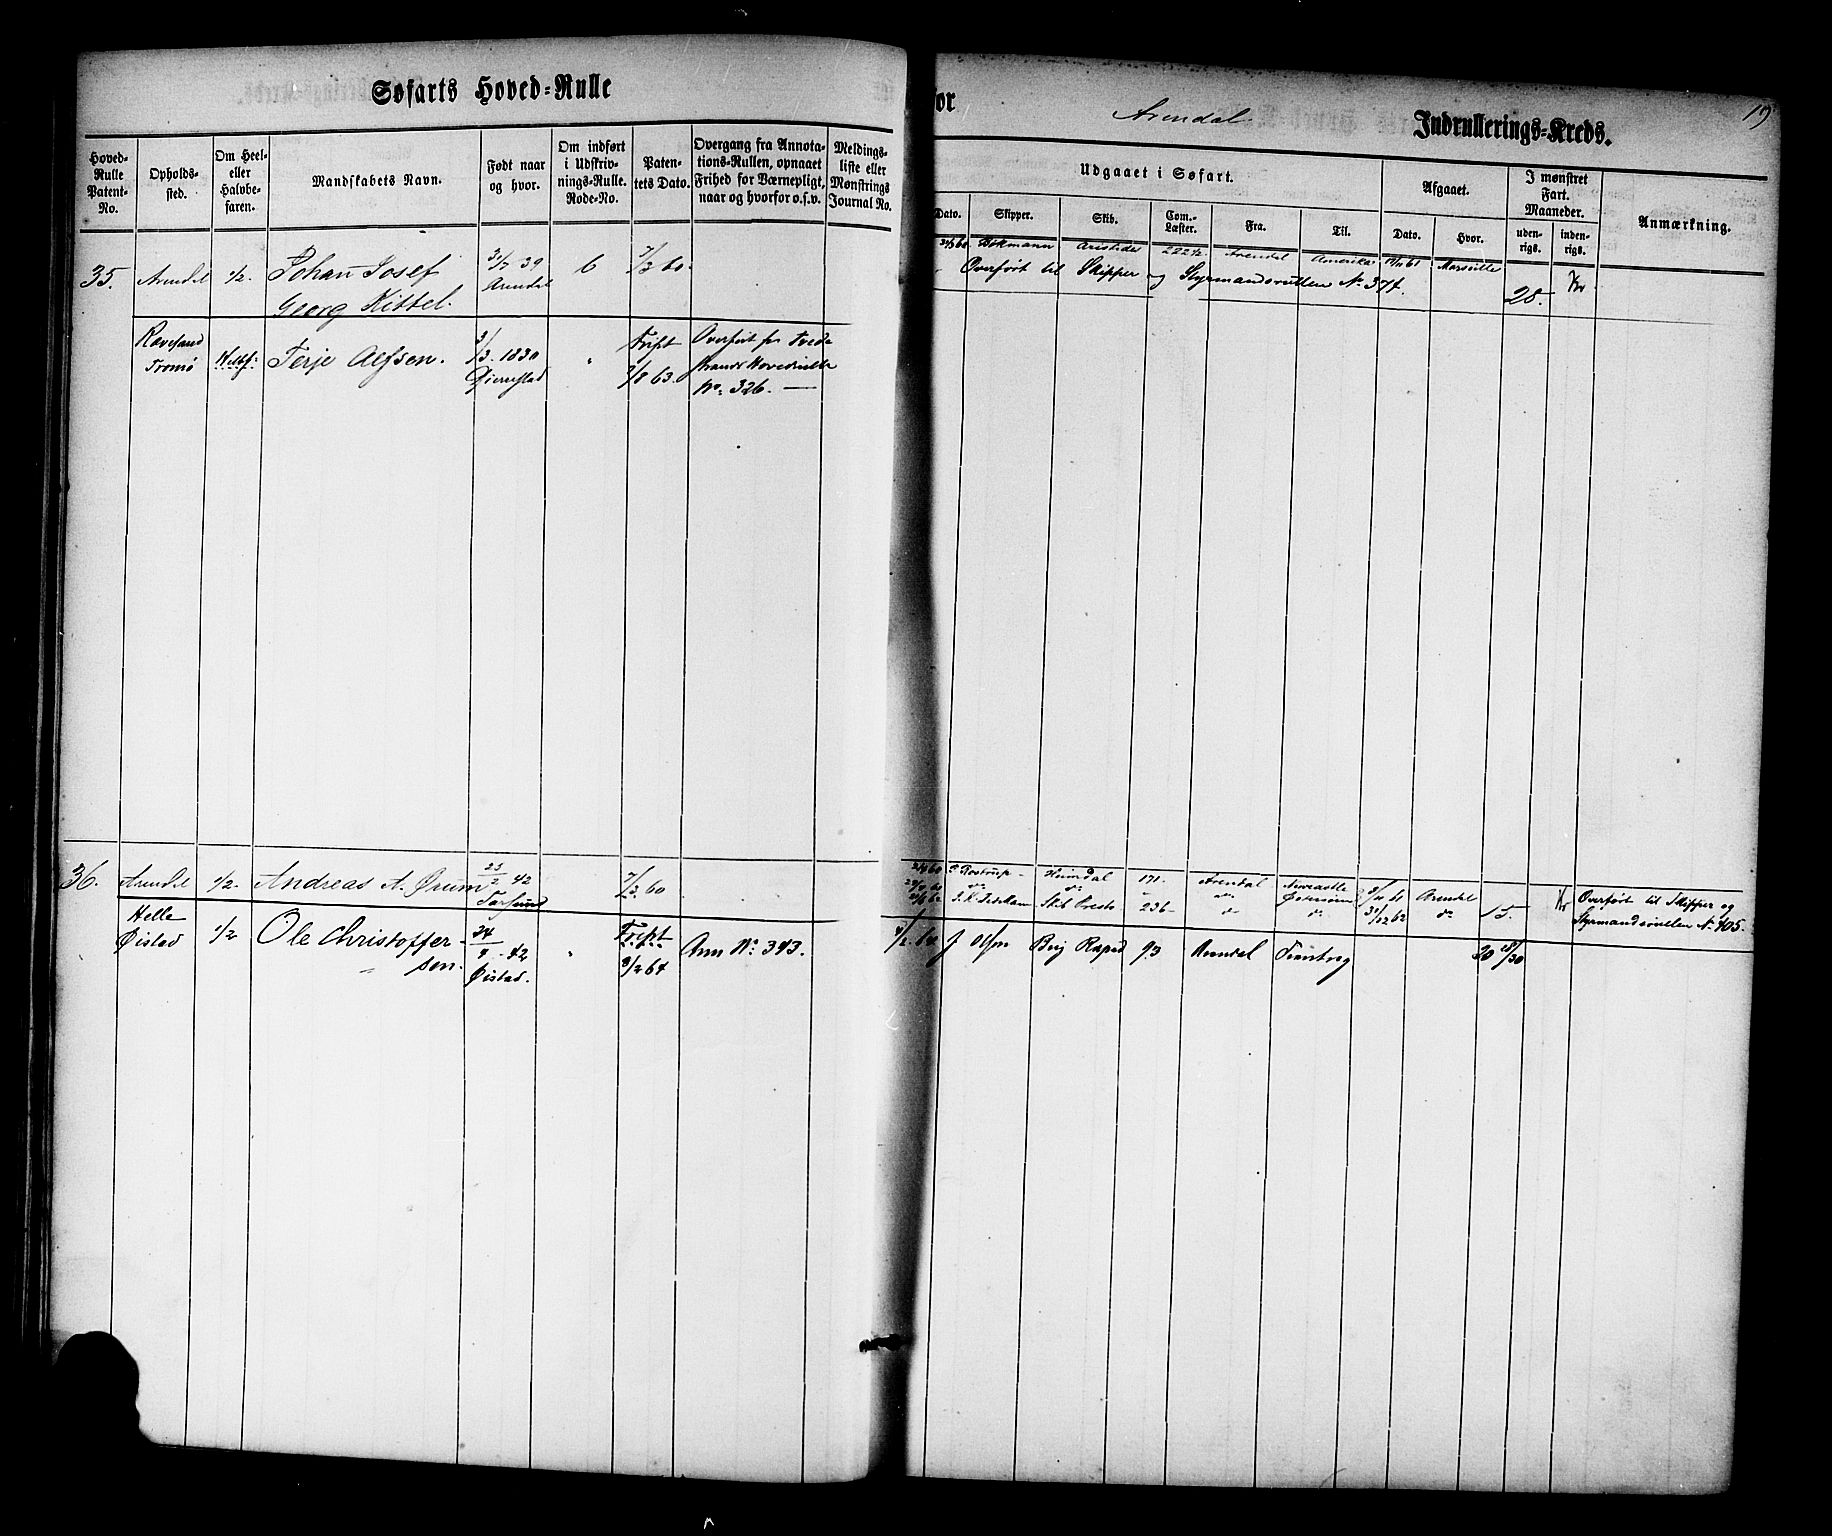 Søfarts Hoved=Rulle
for Arendal Indrullerings=Kreds.
19
Hoved-Rulle Patent-No.
Opholds-sted.
Om Heel- eller Halvbe-faren.
Mandskabets Navn.
Født naar og hvor.
Om indført i Udskriv-nings-Rulle. Rode-No.
Paten-tets Dato.
Overgang fra Annota-tions-Rullen, opnaaet Frihed for Værnepligt, naar og hvorfor o.s.v.
Meldings-liste eller Mønstrings Journal No.
Udgaaet i Søfart.
Dato. Skipper. Skib. Com.-Læster. Fra. Til.
Afgaaet.
Dato. Hvor.
I mønstret Fart. Maaneder.
uden-rigs. inden-rigs.
Anmærkning.
35. Arendal 1/2. Johan Josef
Georg Kittel.
31/7 39
Arendal
6
7/3 60.
Aristides 222 1/2 Arendal Amerika Marseille
Overført til Skipper og Styrmandsrullen No 374.
28.
Tromø
Terje Alfsen.
/3. 1830
Dierrestad
Tript
/8 63.
Overført fra Tvede
strands Hovedrulle
No. 326. —
36. Arendal 1/2. Andreas A. Ørum
23/2 42
7/3 60
Rostrup Heimdal 171. Arendal Newcastle
Arendal
236
15.
Overført til Skipper og
Styrmandsrullen No 405.
Helle
Øistad
1/2 Ole Christoffer-
sen.
24/4 - 42
Øistad.
Tript
3/2 64
Ann No. 343.
J Olsen Brig Rapid 93 Arendal
20 28/30